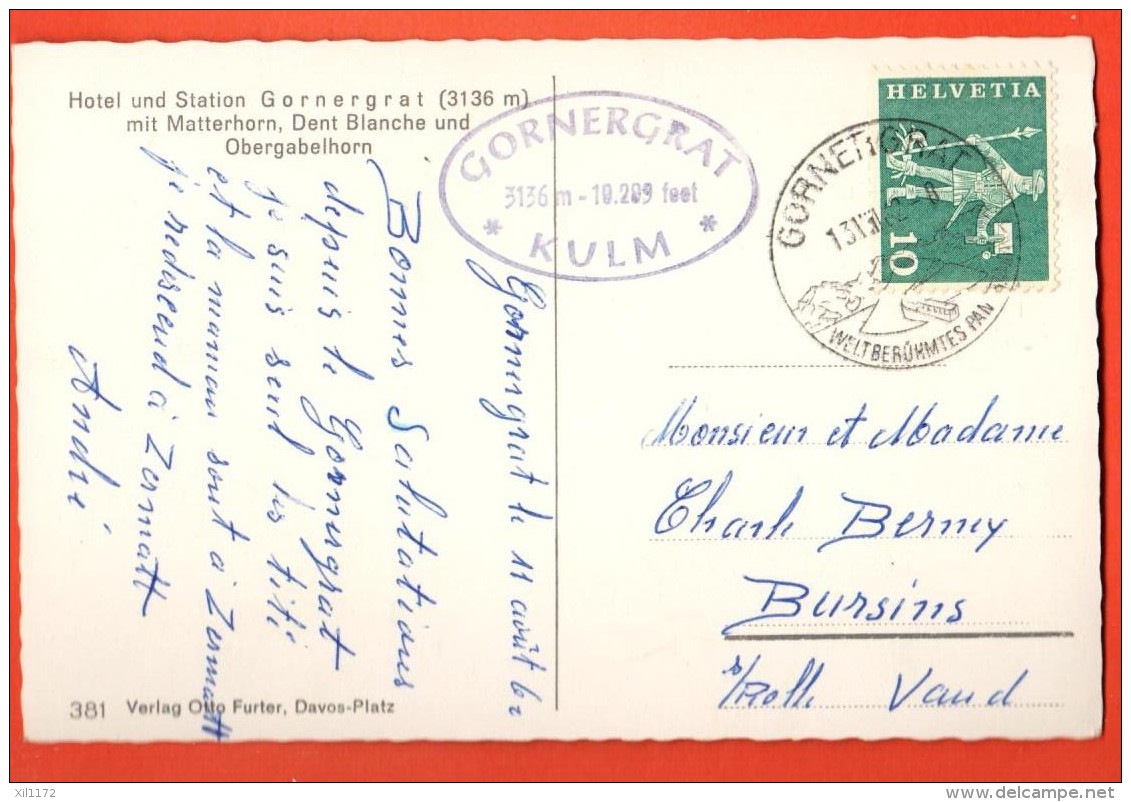 Hotel und Station Gornergrat (3136 m)
mit Matterhorn, Dent Blanche und
Obergabelhorn
GORNERGRAT
3136 m - 10.289 feet
* KULM *
HELVETIA
10
GORNERGRAT
WELTBERÜHMTES PAN
Gornergrat le 11 août 62
Bonnes Salutations
depuis le Gornergrat
je suis seul les titi
et la maman sont à Zermatt
je redscend à Zermatt
André
Monsieur et Madame
Charle Berney
Bursins
s/Rolle Vaud
381 Verlag Otto Furter, Davos-Platz
xil1172